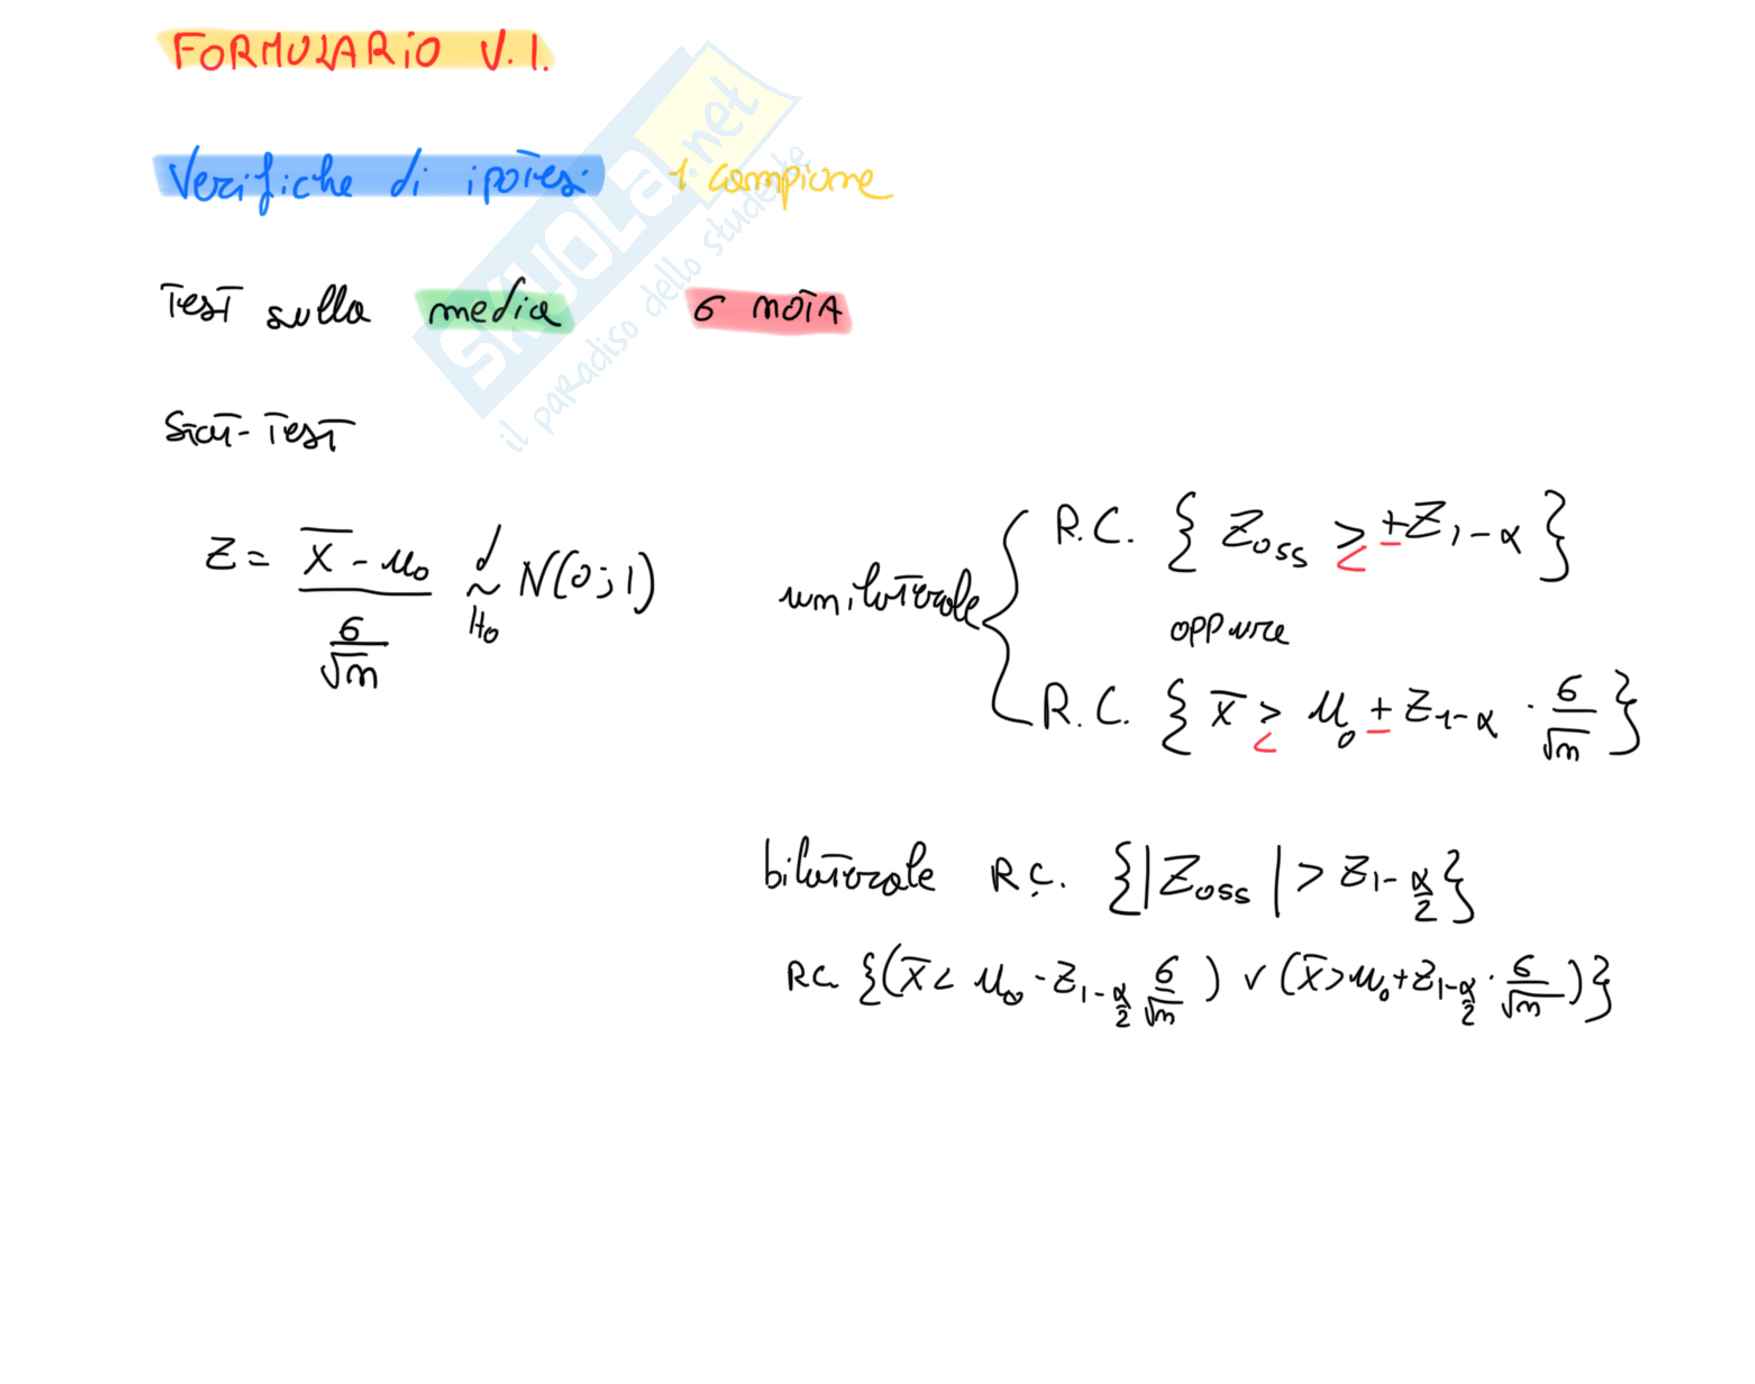 FORMULARIO V.I.
Verifiche di ipotesi 1 campione
Test sulla media σ NOTA
Stat-Test
Z = (X̄ - μ₀) / (σ/√n) ~ᵈ_H₀ N(0;1)
unilaterale
R.C. { Zoss ≷ ±Z₁₋α }
oppure
R.C. { x̄ ≷ μ₀ ± Z₁₋α · σ/√n }
bilaterale R.C. { |Zoss| > Z₁₋α/₂ }
R.C. { (x̄ < μ₀ - Z₁₋α/₂ σ/√n) ∨ (x̄ > μ₀ + Z₁₋α/₂ · σ/√n) }
SKUOLA.net
il paradiso dello studente